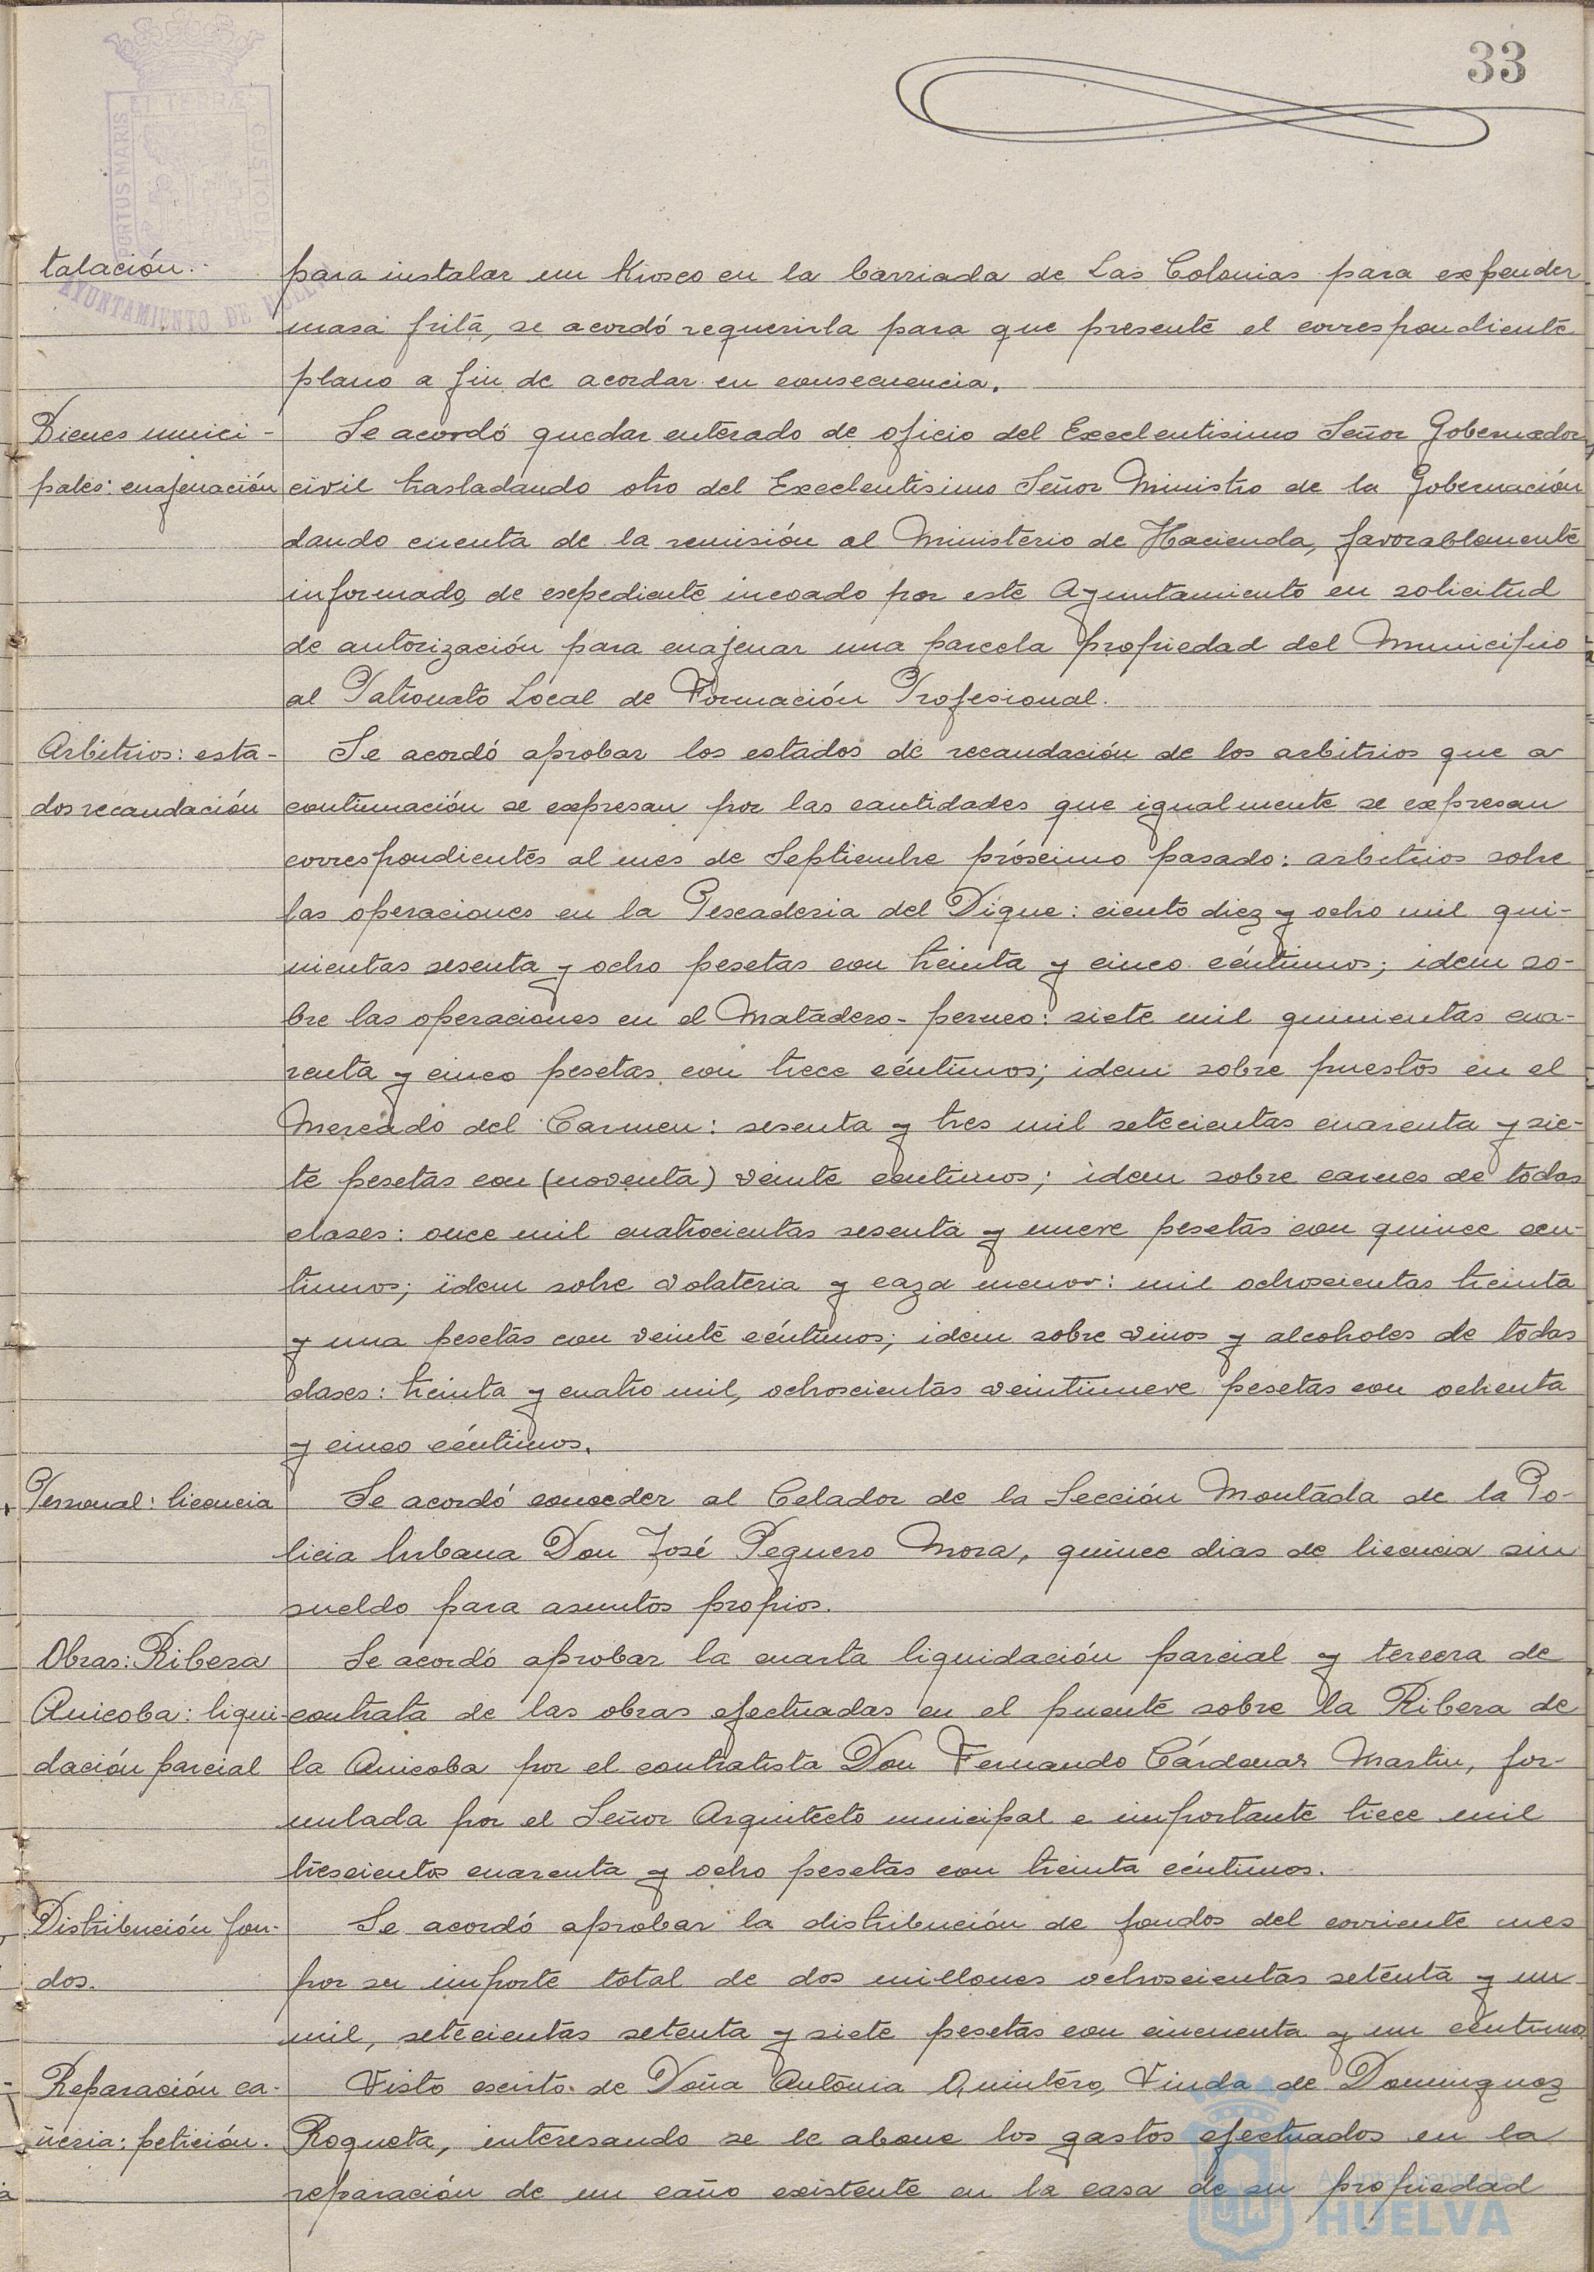 33
PORTUS MARIS ET TERRÆ CUSTODIA
AYUNTAMIENTO DE HUELVA
talación.
para instalar un Kiosco en la barriada de Las Colonias para expender
masa frita, se acordó requerirla para que presente el correspondiente
plano a fin de acordar en consecuencia.
Bienes munici-
pales: enajenación
Se acordó quedar enterado de oficio del Excelentisimo Señor Gobernador
civil trasladando otro del Excelentisimo Señor Ministro de la Gobernación
dando cuenta de la remisión al Ministerio de Hacienda, favorablemente
informado, de expediente incoado por este Ayuntamiento en solicitud
de autorización para enajenar una parcela propiedad del Municipio
al Patronato Local de Formación Profesional.
Arbitrios: esta-
dos recaudación
Se acordó aprobar los estados de recaudación de los arbitrios que a
continuación se expresan por las cantidades que igualmente se expresan
correspondientes al mes de Septiembre próximo pasado: arbitrios sobre
las operaciones en la Pescaderia del Dique: ciento diez y ocho mil qui-
nientas sesenta y ocho pesetas con treinta y cinco céntimos; idem so-
bre las operaciones en el Matadero-perneo: siete mil quinientas cua-
renta y cinco pesetas con trece céntimos; idem sobre puestos en el
Mercado del Carmen: sesenta y tres mil setecientas cuarenta y sie-
te pesetas con (noventa) veinte centimos; idem sobre carnes de todas
clases: once mil cuatrocientas sesenta y nueve pesetas con quince cen-
timos; idem sobre volateria y caza menor: mil ochoscientas treinta
y una pesetas con veinte céntimos; idem sobre vinos y alcoholes de todas
clases: treinta y cuatro mil, ochoscientas veintinueve pesetas con ochenta
y cinco céntimos.
Personal: licencia
Se acordó conceder al Celador de la Sección Montada de la Po-
licia Urbana Don José Peguero Mora, quince dias de licencia sin
sueldo para asuntos propios.
Obras: Ribera
Anicoba: liqui-
dación parcial
Se acordó aprobar la cuarta liquidación parcial y tercera de
contrata de las obras efectuadas en el puente sobre la Ribera de
la Anicoba por el contratista Don Fernando Cárdenas Martin, for-
mulada por el Señor Arquitecto municipal e importante trece mil
trescientos cuarenta y ocho pesetas con treinta céntimos.
Distribución fon-
dos.
Se acordó aprobar la distribución de fondos del corriente mes
por su importe total de dos millones ochoscientas setenta y un
mil, setecientas setenta y siete pesetas con cincuenta y un céntimos
Reparación ca-
ñeria: petición.
Visto escrito de Doña Antonia Quintero, Viuda de Dominguez
Roqueta, interesando se le abone los gastos efectuados en la
reparación de un caño existente en la casa de su propiedad
Ayuntamiento de
HUELVA